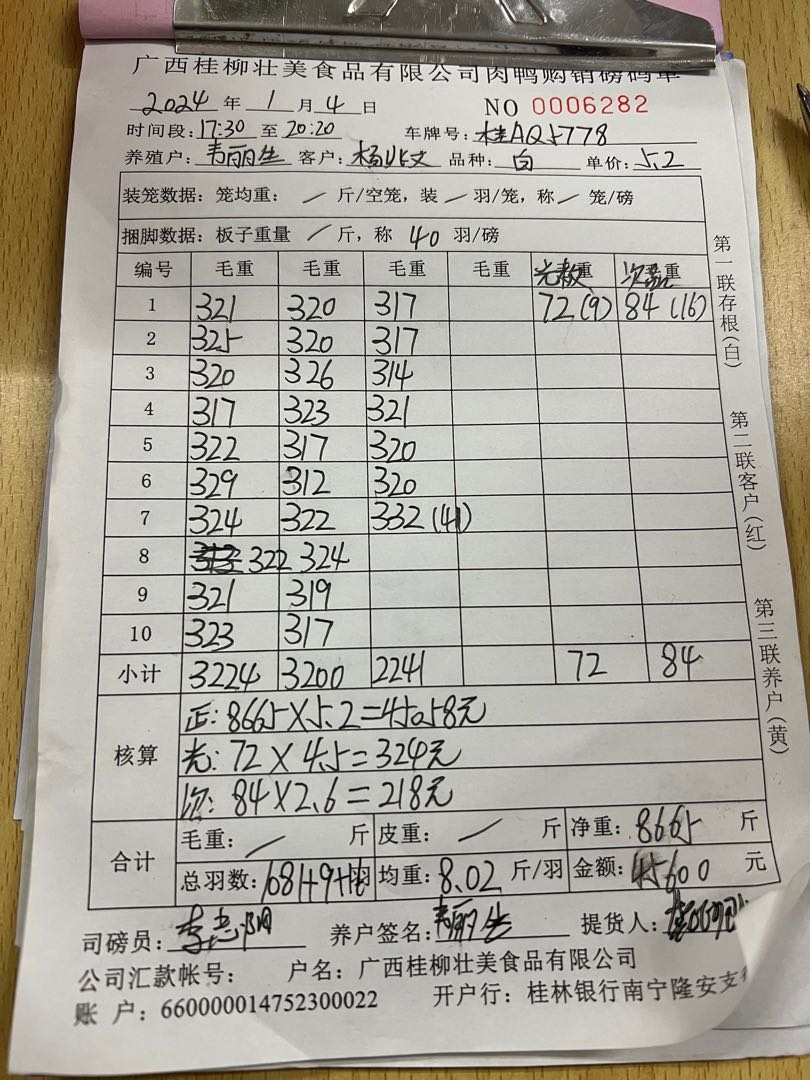 广西桂柳壮美食品有限公司肉鸭购销磅码单
2024 年 1 月 4 日 NO 0006282
时间段: 17:30 至 20:20 车牌号: 桂AQ5778
养殖户: 韦丽生 客户: 杨 品种: 白 单价: 5.2
装笼数据: 笼均重: / 斤/空笼, 装 / 羽/笼, 称 / 笼/磅
捆脚数据: 板子重量 / 斤, 称 40 羽/磅
编号 毛重 毛重 毛重 毛重 光 重 次品重
1 321 320 317 72(9) 84(16)
2 325 320 317
3 320 326 314
4 317 323 321
5 322 317 320
6 329 312 320
7 324 322 332(41)
8 322 324
9 321 319
10 323 317
小计 3224 3200 2241 72 84
核算
正: 8665×5.2=45058元
光: 72×4.5=324元
次: 84×2.6=218元
合计
毛重: / 斤 皮重: / 斤 净重: 8665 斤
总羽数: 1081+9+ 羽 均重: 8.02 斤/羽 金额: 45600 元
司磅员: 李志阳 养户签名: 韦丽生 提货人:
公司汇款帐号: 户名: 广西桂柳壮美食品有限公司
账 户: 660000014752300022 开户行: 桂林银行南宁隆安支行
第一联存根(白)
第二联客户(红)
第三联养户(黄)